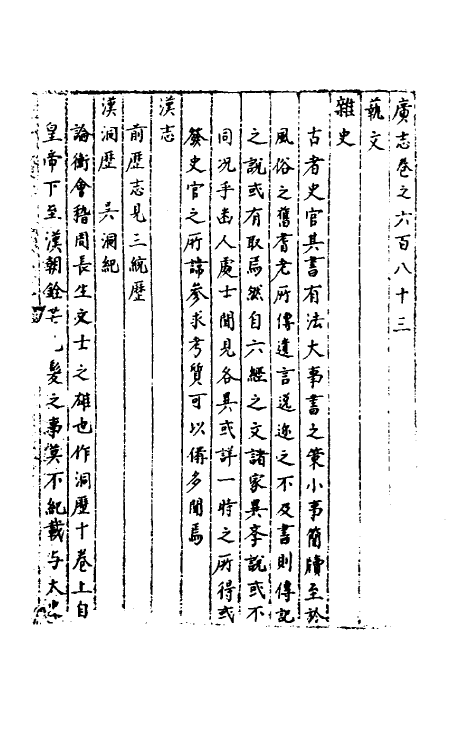 廣志卷之六百八十三
藝文
雜史
古者史官其書有法大事書之策小事簡牘至於
風俗之舊耆老所傳遺言逸迹之不及書則傳記
之說或有取焉然自六經之文諸家異學說或不
同况乎幽人處士聞見各異或詳一時之所得或
發史官之所諱參求考質可以備多聞焉
漢志
前歷志見三統歷
漢洞歷 吳洞紀
論衡會稽周長生文士之雄也作洞歷十卷上自
皇帝下至漢朝鋒芒 髮之事莫不紀載与太史